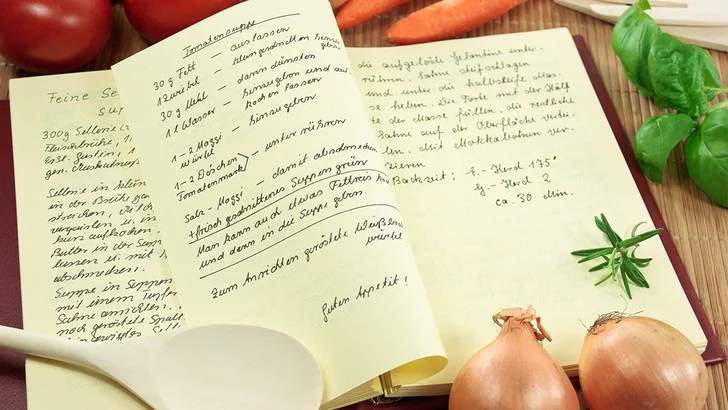 Feine Se
Sup
300g Sellerie
Fleischbrühe,
gen. Muskatnuss
Sellerie in klein
in der Brühe ga
streichen, Milch
kurz aufkochen
Butter in der Supp
lassen u. mit
abschmecken.
Suppe in Suppen
mit einem
Sahne anrichten.
noch geröstete
Tomatensuppe
30 g Fett – auslassen
1 Zwiebel – kleingeschnitten hinzu
geben
30 g Mehl – darin dünsten
1 l Wasser – hinzugeben und auf
kochen lassen
1-2 Maggi – hinzugeben
Würfel
1-2 Döschen – unterrühren
Tomatenmark
Salz - Maggi – damit abschmecken
+ frisch geschnittenes Suppengrün
Man kann auch etwas Fettreis kochen
und dann in die Suppe geben.
Zum Anrichten geröstete Weißbrot
würfel
Guten Appetit!
die aufgelöste Gelantine unter-
rühren. Sahne steifschlagen
und unter die halbsteife Mas-
se heben. Die Torte mit der Hälf
te der Masse füllen, die restliche
Sahne auf der Oberfläche vertei-
len. Mit Mokkabohnen ver-
zieren
Backzeit: E.-Herd 175°
G.-Herd 2
ca. 30 Min.